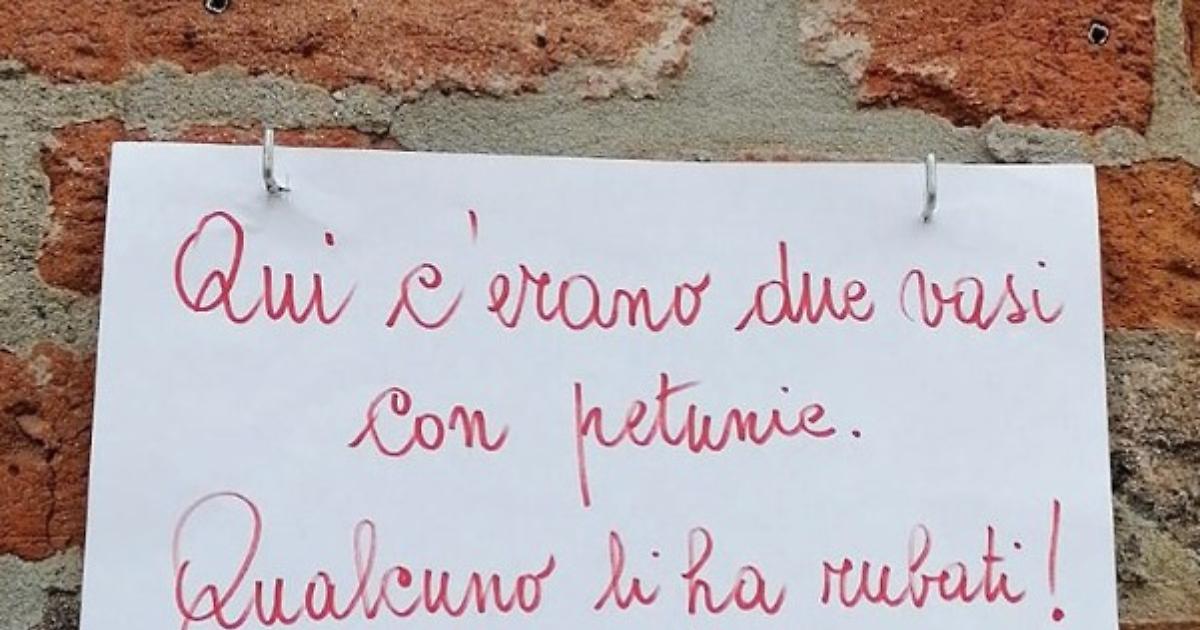 Qui c'erano due vasi
con petunie.
Qualcuno li ha rubati!